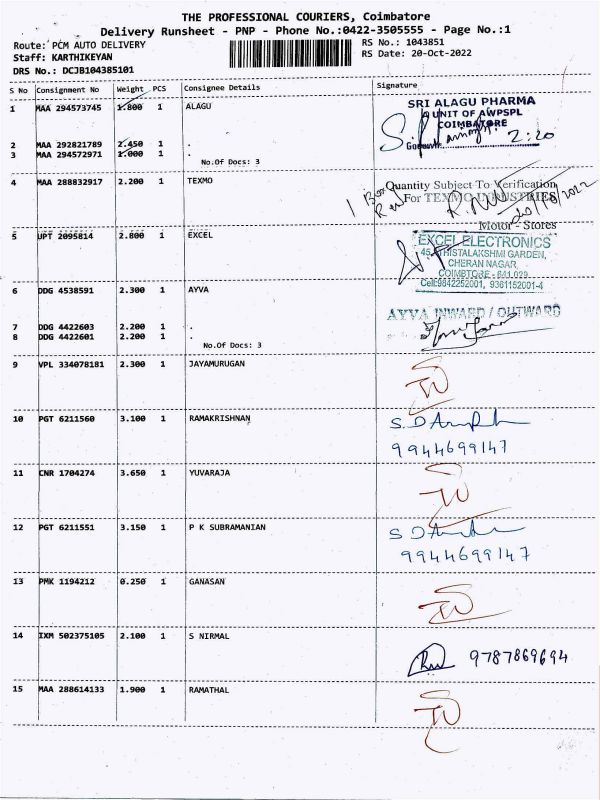 THE PROFESSIONAL COURIERS, Coimbatore
Delivery Runsheet - PNP - Phone No.:0422-3505555 - Page No.:1
Route: PCM AUTO DELIVERY
RS No.: 1043851
Staff: KARTHIKEYAN
RS Date: 20-Oct-2022
DRS No.: DCJB104385101
S No Consignment No Weight PCS Consignee Details Signature
1 MAA 294573745 1.800 1 ALAGU
SRI ALAGU PHARMA
A UNIT OF AWPSPL
COIMBATORE
2:20
2 MAA 292821789 2.450 1 .
3 MAA 294572971 1.000 1 .
No.Of Docs: 3
4 MAA 288832917 2.200 1 TEXMO
1 Box
Quantity Subject To Verification
For TEXMO INDUSTRIES
20/10/2022
Motor - Stores
5 UPT 2095814 2.800 1 EXCEL
EXCEL ELECTRONICS
45, THISTALAKSHMI GARDEN,
CHERAN NAGAR,
COIMBTORE - 641 029
Cell:9842252001, 9361152001-4
6 DDG 4538591 2.300 1 AYVA
AYVA INWARD / OUTWARD
7 DDG 4422603 2.200 1 .
8 DDG 4422601 2.200 1 .
No.Of Docs: 3
9 VPL 334078181 2.300 1 JAYAMURUGAN
10 PGT 6211560 3.100 1 RAMAKRISHNAN
9944699147
11 CNR 1704274 3.650 1 YUVARAJA
12 PGT 6211551 3.150 1 P K SUBRAMANIAN
9944699147
13 PMK 1194212 0.250 1 GANASAN
14 IXM 502375105 2.100 1 S NIRMAL
9787869694
15 MAA 288614133 1.900 1 RAMATHAL